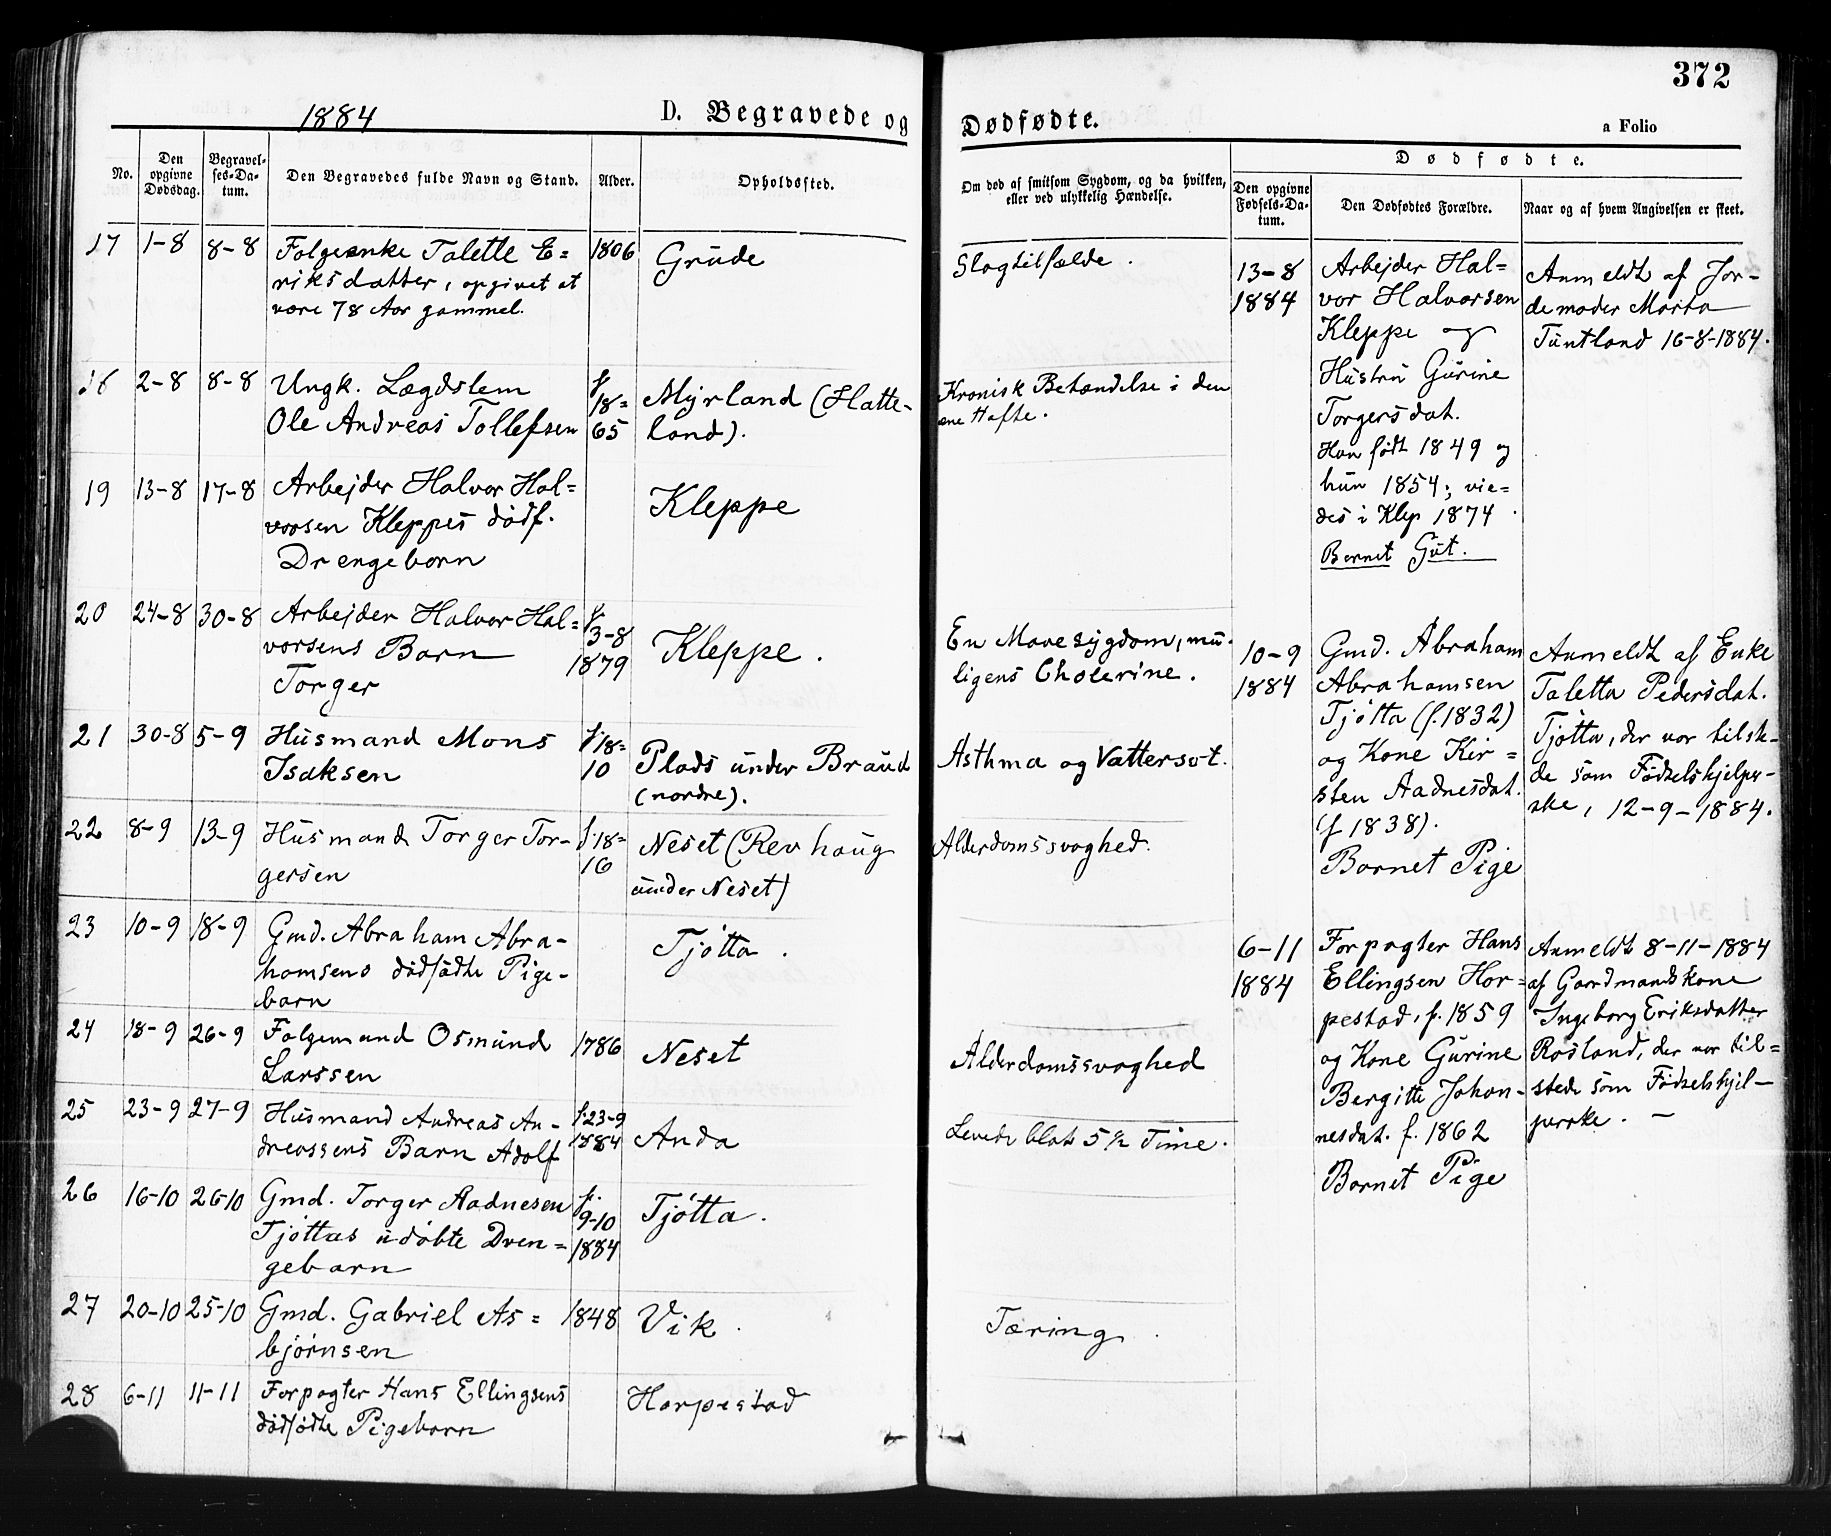 372
1884 D. Begravede og Dødfødte.
a Folio
No.
Den opgivne Dødsdag.
Begravel-
ses-Da-
tum.
Den Begravedes fulde Navn og Stand.
Alder.
Opholdssted.
Om død af smitsom Sygdom, og da hvilken,
eller ved ulykkelig Hændelse.
Dødfødte.
Den opgivne
Fødsels-Da-
tum.
Den Dødfødtes Forældre.
Naar og af hvem Angivelsen er skeet.
17 1-8 8-8 Folgeenke Talette E= 1806 Grude Slagtilfælde.
riksdatter, opgivet at
være 78 Aar gammel.
18 2-8 8-8 Ungk. Lægdslem f. 18= Myrland (Hatte- Kronisk Betændelse i den
Ole Andreas Tollefsen 65 land). ene Hofte.
19 13-8 17-8 Arbejder Halvor Hal= Kleppe
vorsen Kleppes dødf.
Drengebarn
20 24-8 30-8 Arbejder Halvor Hal= f. 3-8 Kleppe. En Mavesygdom, mu-
vorsens Barn 1879 ligens Cholerine.
Torger
21 30-8 5-9 Husmand Mons f. 18= Plads under Braud Asthma og Vattersot.
Isaksen 10 (nordre).
22 8-9 13-9 Husmand Torger Tor- f. 18= Neset (Revhaug Alderdomssvaghed.
gersen 16 under Neset)
23 10-9 18-9 Gmd. Abraham Abra- Tjøtta.
hamsens dødfødte Pige-
barn
24 18-9 26-9 Folgemand Osmund 1786 Neset Alderdomssvaghed
Larssen
25 23-9 27-9 Husmand Andreas An- f. 23-9 Anda Levede blot 5 1/2 Time.
dreassens Barn Adolf 1884
26 16-10 26-10 Gmd. Torger Aadnesen f. 9-10 Tjøtta.
Tjøttas udøbte Dren= 1884
gebarn
27 20-10 25-10 Gmd. Gabriel As= 1848 Vik. Tæring.
bjørnsen
28 6-11 11-11 Forpagter Hans Ellingsens Horpestad
dødfødte Pigebarn
13-8
1884
Arbejder Hal=
vor Halvorsen
Kleppe og
Hustru Gurine
Torgersdat.
Han født 1849 og
hun 1854; vie=
des i Klep 1874.
Barnet Gut.
Anmeldt af Jor-
demoder Marta
Tuntland 16-8-1884.
10-9
1884
Gmd. Abraham
Abrahamsen
Tjøtta (f. 1832)
og Kone Kir=
sten Aadnesdat.
(f 1838).
Barnet Pige
Anmeldt af Enke
Taletta Pedersdat.
Tjøtta, der var tilste-
de som Fødselshjelper-
ske, 12-9-1884.
6-11
1884
Forpagter Hans
Ellingsen Hor=
pestad, f. 1859
og Kone Gurine
Bergitte Johan-
nesdat. f. 1862
Barnet Pige
Anmeldt 8-11-1884
af Gaardmandskone
Ingeborg Eriksdatter
Rosland, der var til=
stede som Fødselshjel-
perske. -